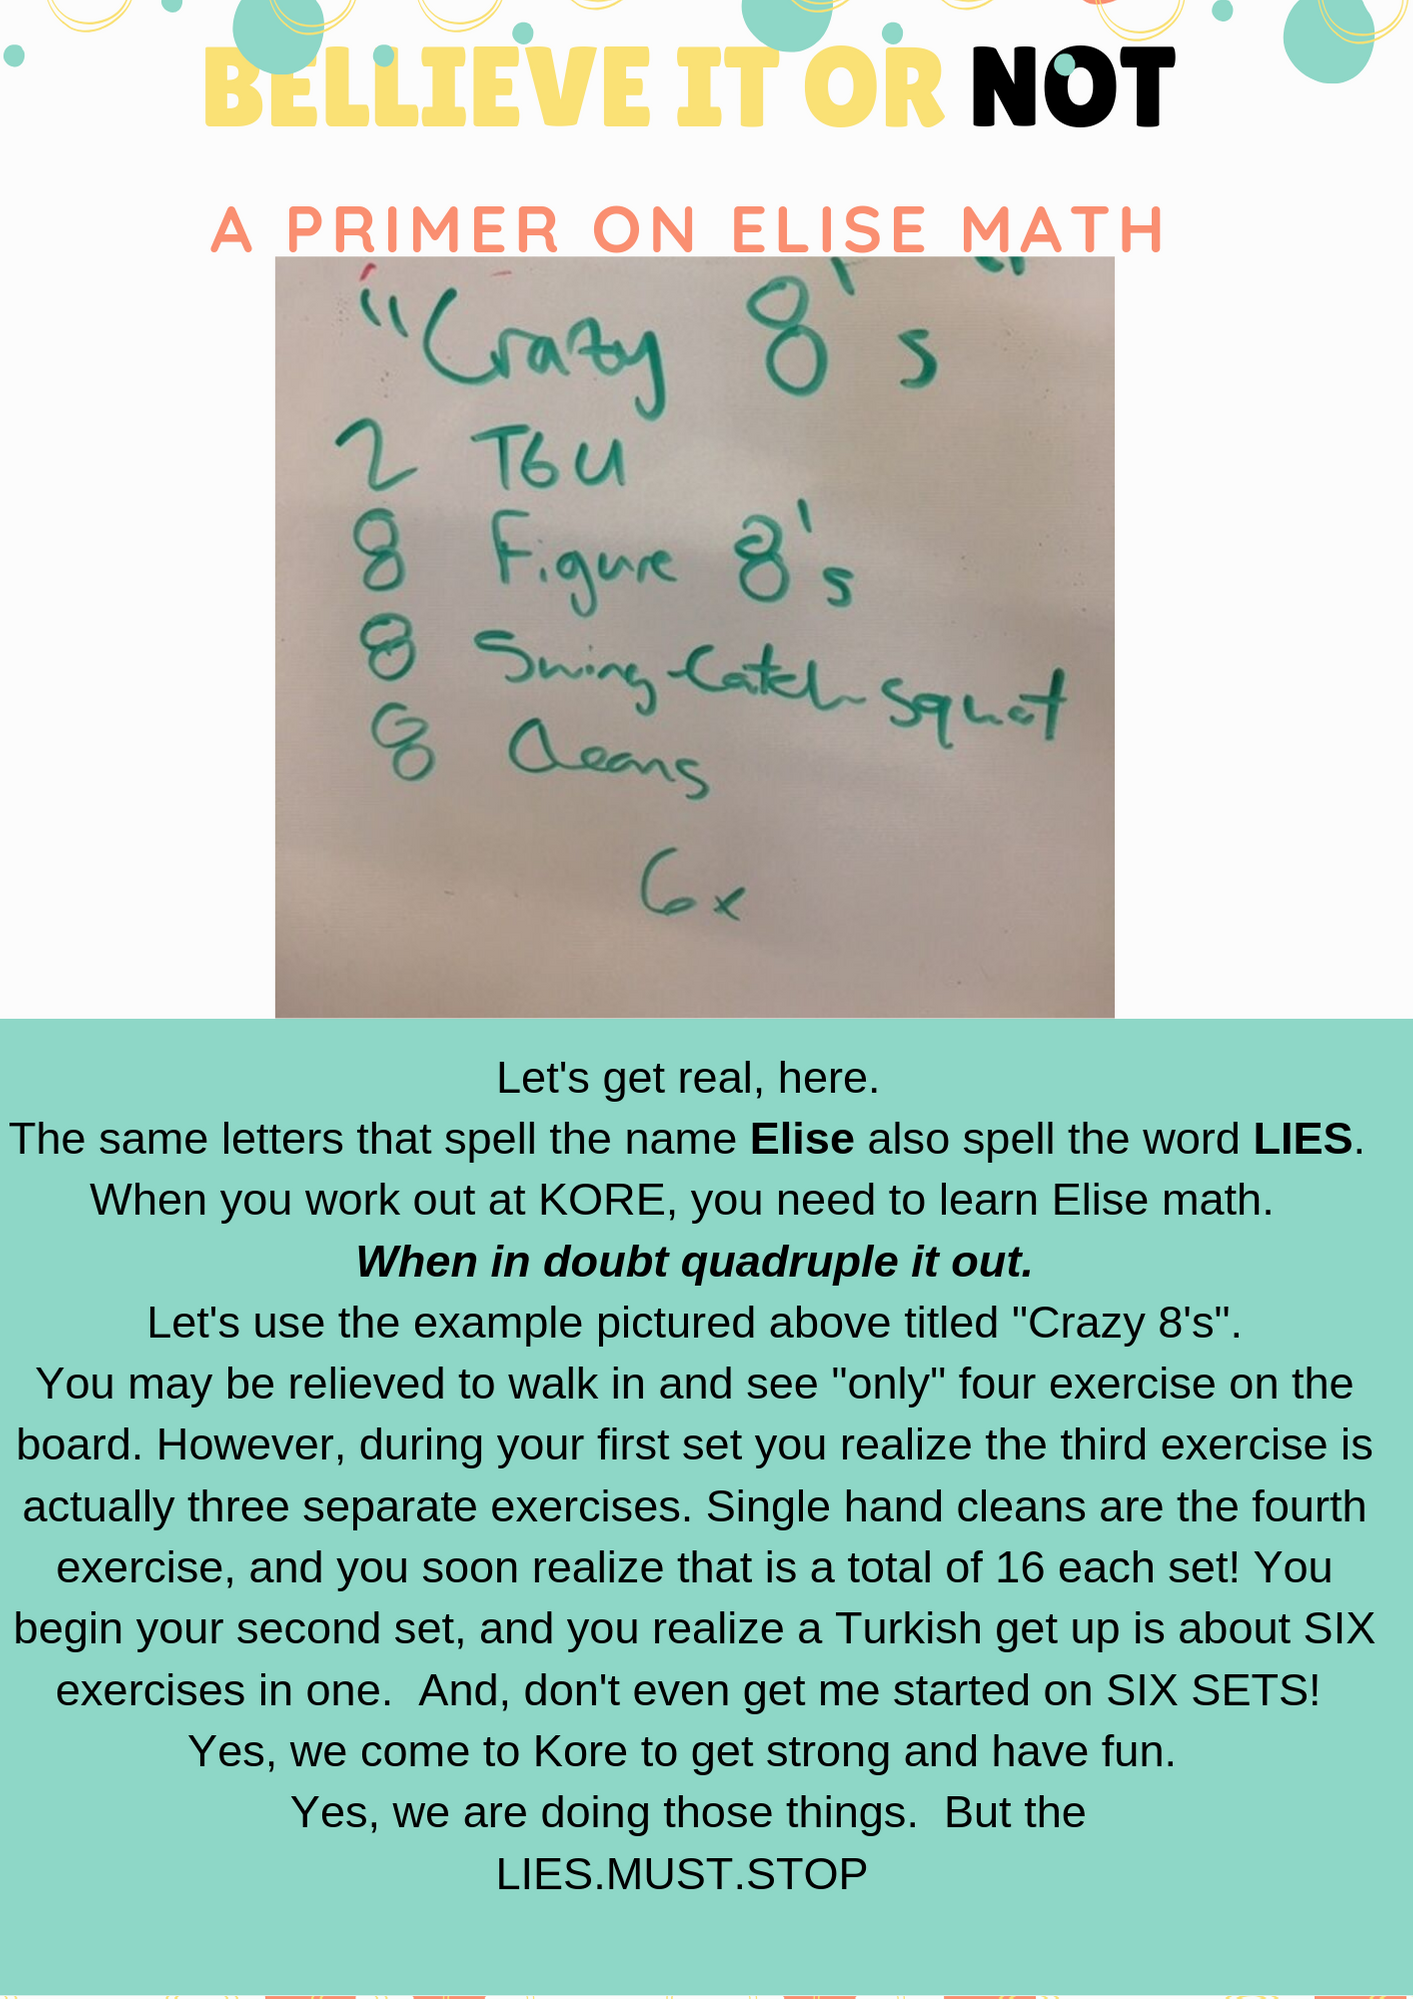 BELLIEVE IT OR NOT
A PRIMER ON ELISE MATH
"Crazy 8's"
2 TGU
8 Figure 8's
8 Swing-Catch-Squat
8 Cleans
6x
Let's get real, here.
The same letters that spell the name Elise also spell the word LIES.
When you work out at KORE, you need to learn Elise math.
When in doubt quadruple it out.
Let's use the example pictured above titled "Crazy 8's".
You may be relieved to walk in and see "only" four exercise on the
board. However, during your first set you realize the third exercise is
actually three separate exercises. Single hand cleans are the fourth
exercise, and you soon realize that is a total of 16 each set! You
begin your second set, and you realize a Turkish get up is about SIX
exercises in one.  And, don't even get me started on SIX SETS!
Yes, we come to Kore to get strong and have fun.
Yes, we are doing those things.  But the
LIES.MUST.STOP